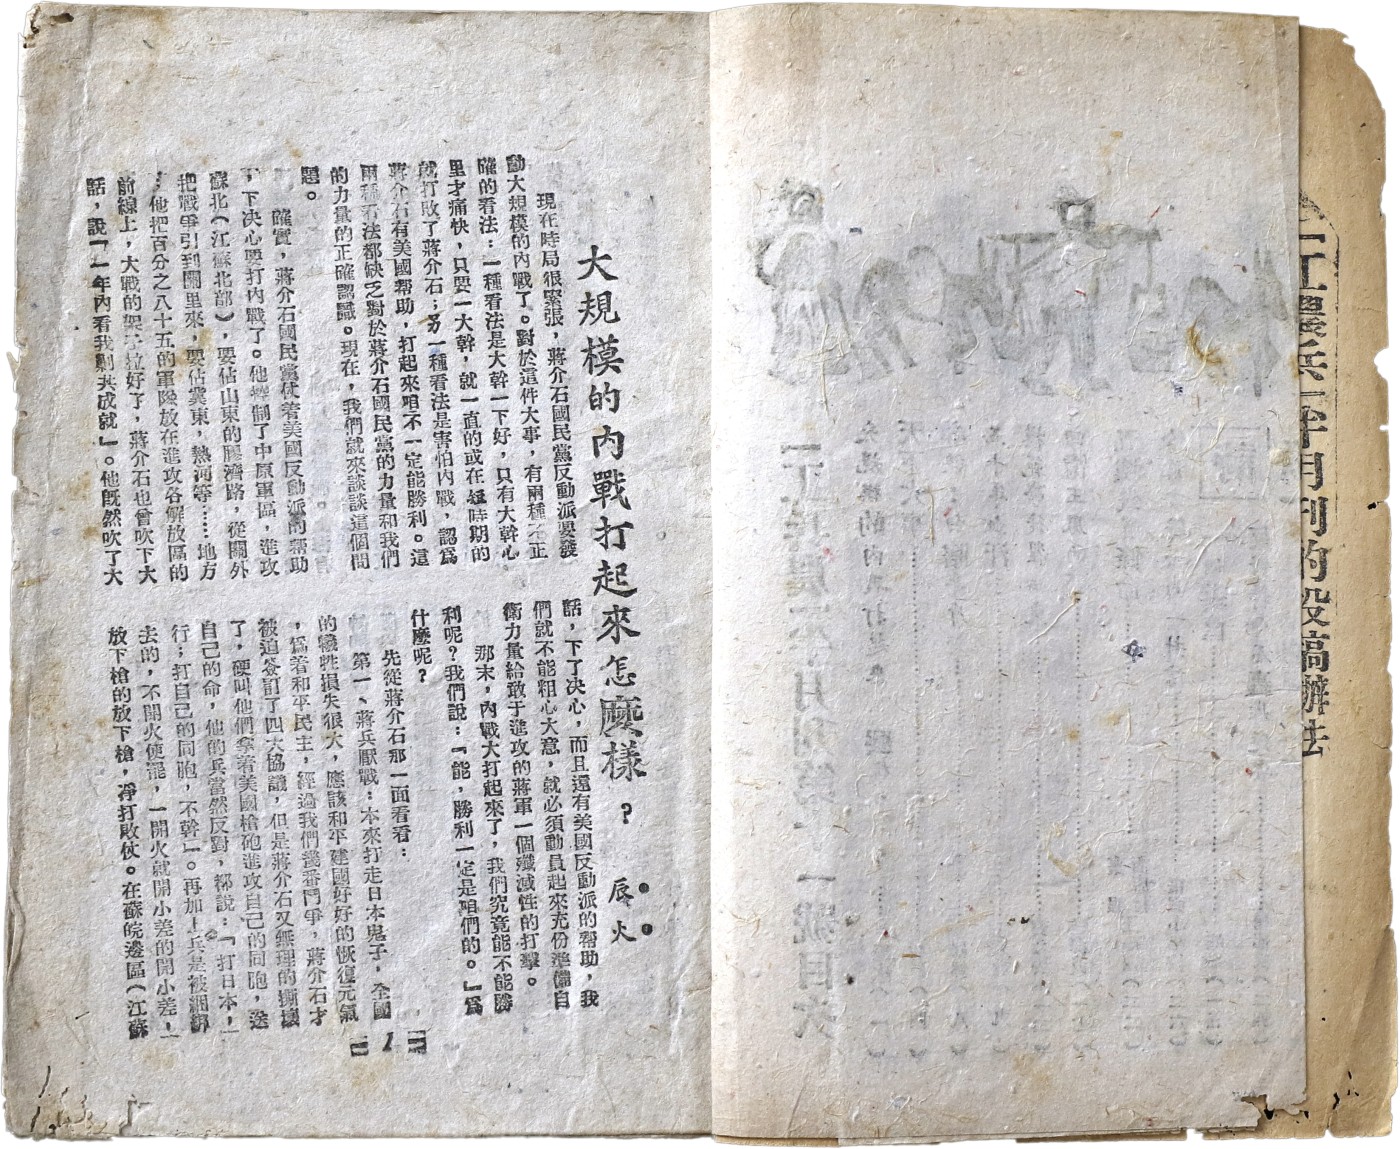 工農兵半月刊的投稿辦法
大規模的內戰打起來怎麽樣？
辰火
現在時局很緊張，蔣介石國民黨反動派要發
動大規模的內戰了。對於這件大事，有兩種不正
確的看法：一種看法是大幹一下好，只有大幹心
里才痛快，只要一大幹，就一直的或在短時期的
就打敗了蔣介石；另一種看法是害怕內戰，認爲
蔣介石有美國帮助，打起來咱不一定能勝利。這
兩種看法都缺乏對於蔣介石國民黨的力量和我們
的力量的正確認識。現在，我們就來談談這個問
題。
確實，蔣介石國民黨仗着美國反動派的帮助
，下决心要打內戰了。他控制了中原軍區，進攻
蘇北（江蘇北部），要佔山東的膠濟路，從關外
把戰爭引到關里來，要佔冀東，熱河等……地方
，他把百分之八十五的軍隊放在進攻各解放區的
前線上，大戰的架子拉好了，蔣介石也曾吹下大
話，說「一年內看我剿共成就」。他既然吹了大
話，下了决心，而且還有美國反動派的帮助，我
們就不能粗心大意，就必須動員起來充份準備自
衛力量給敢于進攻的蔣軍一個殲滅性的打擊。
那末，內戰大打起來了，我們究竟能不能勝
利呢？我們說：「能，勝利一定是咱們的。」爲
什麽呢？
先從蔣介石那一面看看：
第一、蔣兵厭戰：本來打走日本鬼子，全國
的犧牲損失很大，應該和平建國好好的恢復元氣
，爲着和平民主，經過我們幾番鬥爭，蔣介石才
被迫簽訂了四大協議，但是蔣介石又無理的撕壞
了，硬叫他們拿着美國槍砲進攻自己的同胞，送
自己的命，他的兵當然反對，都說：「打日本，
行；打自己的同胞，不幹」。再加上兵是被綑綁
去的，不開火便罷，一開火就開小差的開小差，
放下槍的放下槍，凈打敗仗。在蘇皖邊區（江蘇
1